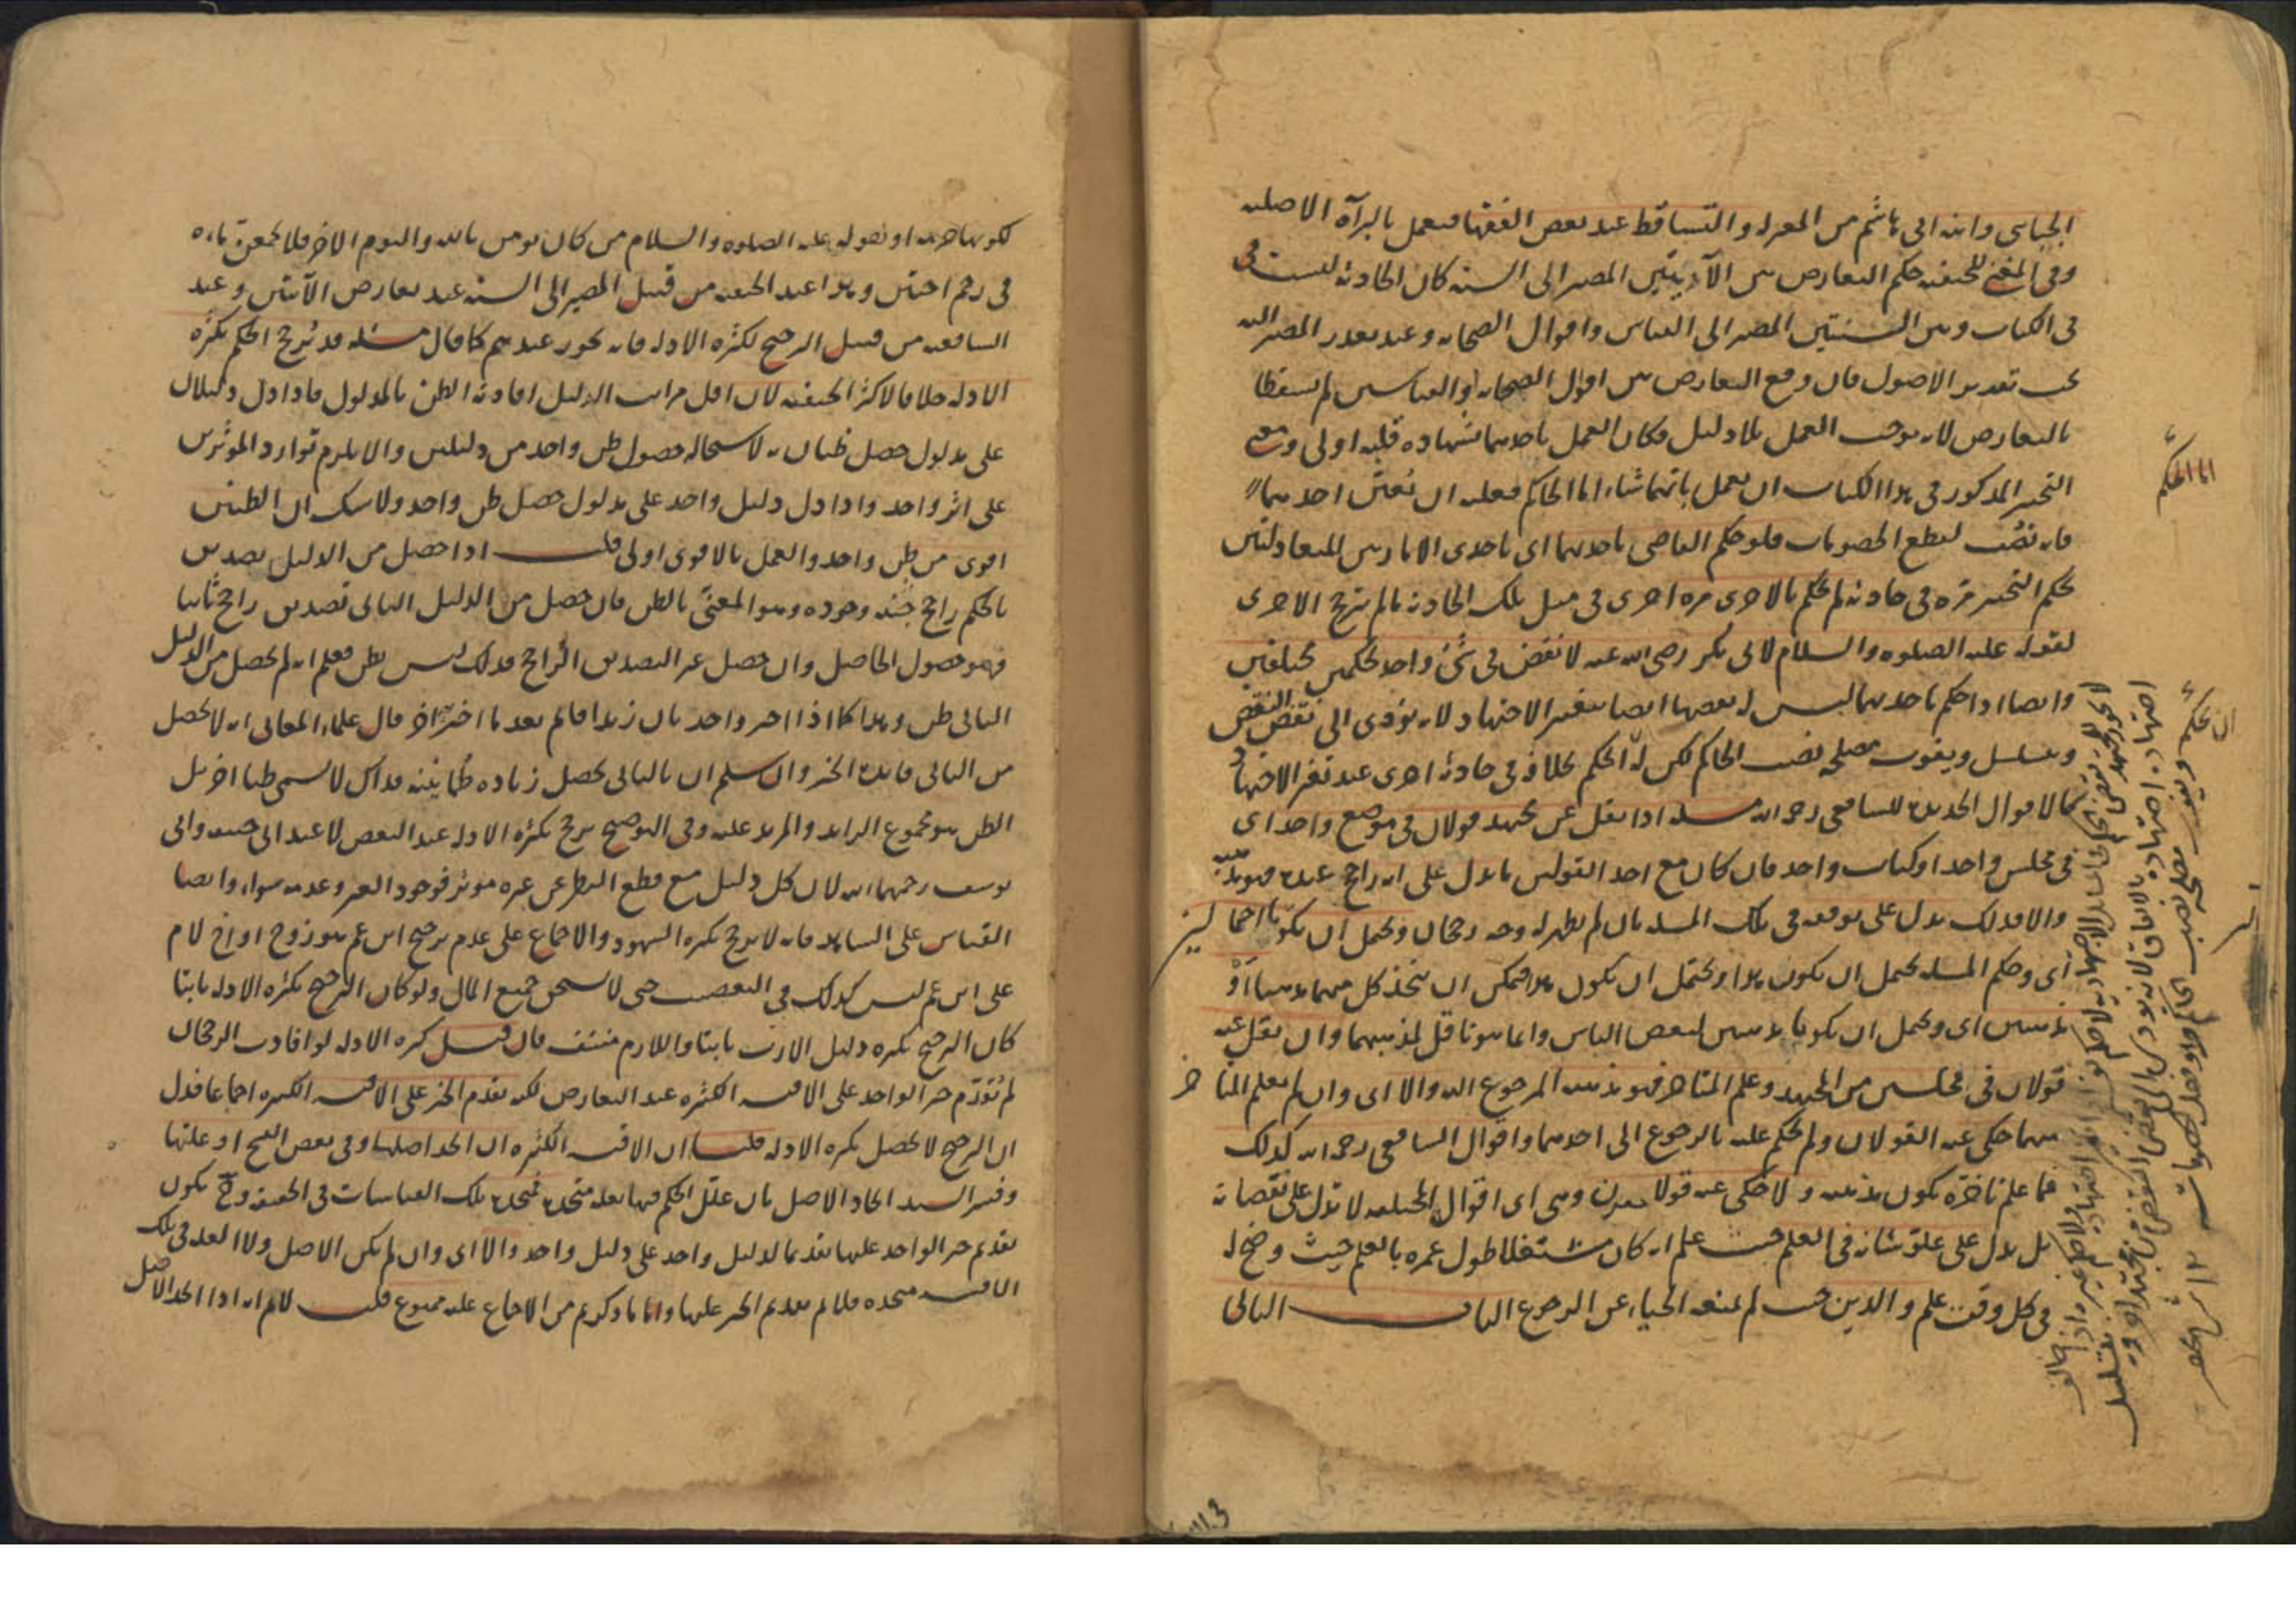 الجبائى وابنه ابى هاشم من المعتزله والتساقط عند بعض الفقها فيعمل بالبرآة الاصليه
وفى المغنى للحنفيه حكم التعارض بين الآيتين المصير الى السنه كان الحادثه ليست فى
فى الكتاب وبين السنتين المصير الى القياس واقوال الصحابه وعند تعذر المصير اليه
يجب تقدير الاصول فان وقع التعارض بين اقوال الصحابه او القياسين لم يسقطا
بالتعارض لانه يوجب العمل بلا دليل فكان العمل باحدهما بشهاده قلبه اولى ومع
التخيير المذكور فى هذا الكتاب ان يعمل بايهما شاء اما الحاكم فعليه ان يُعيّن احدهما
فانه نصُب لقطع الخصومات فلو حكم القاضى باحدهما اى باحدى الامارتين المتعادلتين
بحكم التخيير مره فى حادثه لم يحكم بالاخرى مره اخرى فى مثل تلك الحادثه ما لم يترجح الاخرى
لقوله عليه الصلوه والسلام لابى بكر رضى الله عنه لا تقض فى شئ واحد بحكمين مختلفين
وايضا اذا حكم باحدهما ليس له نقضها ايضا بتغير الاجتهاد لانه يؤدى الى نقض النقض
ويتسلسل ويفوت مصلحه نصب الحاكم لكن له الحكم بخلافه فى حادثة اخرى عند تغير الاجتهاد
كالاقوال الجديده للشافعى رحمه الله مسئله اذا نقل عن مجتهد قولان فى موضع واحد اى
فى مجلس واحد او كتاب واحد فان كان مع احد القولين ما يدل على انه راجح عنده فهو مذهبه
والا فذلك يدل على توقفه فى تلك المسئله بان لم يظهر له وجه رجحان ويحتمل ان يكونا احتمالين
اى وحكم المسئله يحتمل ان يكون هذا ويحتمل ان يكون هذا فيمكن ان يتخذ كل منهما مذهبا أوْ
مذهبين اى ويحتمل ان يكونا مذهبين لبعض الناس وانما هو ناقل لمذهبهما وان نقل عنه
قولان فى مجلسين من المجتهد وعلم المتاخر فهو مذهبه المرجوع اليه والا اى وان لم يعلم المتاخر
منهما حكى عنه القولان ولم يحكم عليه بالرجوع الى احدهما واقوال الشافعى رحمه الله كذلك
فما علم تاخره يكون مذهبه ولا حكى عنه قولا وهى اى اقوال المختلفه لا تدل على نقصانه
بل يدل على علوّ شانه فى العلم حيث علم انه كان مشتغلا طول عمره بالعلم حيث وضح له
فى كل وقت علم والدين حيث لم يمنعه الحياء عن الرجوع الباب الثانى
اما الحاكم
لكونها حره او بقوله عليه الصلوه والسلام من كان يومن بالله واليوم الاخر فلا يجمعنّ ماءه
فى رحم اختين وهذا عند الحنفيه من قبيل المصير الى السنه عند تعارض الآيتين وعند
الشافعيه من قبيل الترجيح لكثره الادله فانه يجوز عندهم كما قال مسئله قد يُرجح الحكم بكثرة
الادله خلافا لاكثر الحنفيه لان اقل مراتب الدليل افادته الظن بالمدلول فاذا دل دليلان
على مدلول حصل ظنان به لاستحاله حصول ظن واحد من دليلين والا يلزم توارد المؤثرين
على اثر واحد واذا دل دليل واحد على مدلول حصل ظن واحد ولا شك ان الظنين
اقوى من ظن واحد والعمل بالاقوى اولى قلت اذا حصل من الدليل تصديق
بالحكم راجح جنبه وجوده وهو المعنىّ بالظن فان حصل من الدليل الثانى تصديق راجح ثانيا
فهو حصول الحاصل وان حصل غير التصديق الراجح فذلك ليس بظن فعلم انه لم يحصل من الدليل
الثانى ظن وهذا كما اذا اخبر واحد بان زيدا قائم بعد ما اخبر اخر قال علماء المعانى انه لا يحصل
من الثانى فائدة الخبر وان سلم ان بالثانى يحصل زياده طمانينه فذلك لا يسمى ظنا اخر بل
الظن هو مجموع الزايد والمزيد عليه وفى التوضيح يرجح بكثرة الادله عند البعض لا عند ابى حنيفه وابى
يوسف رحمهما الله لان كل دليل مع قطع النظر عن غيره موثر فوجود الغير وعدمه سواء وايضا
القياس على الشاهد فانه لا يرجح بكثره الشهود والاجماع على عدم ترجيح ابن عم هو زوج او اخ لام
على ابن عم ليس كذلك فى التعصيب حتى لا يستحق جميع المال ولو كان الترجيح بكثره الادله ثابتا
كان الترجيح بكثره دليل الارث ثابتا واللازم منتف فان قيل كثره الادله لو افادت الرجحان
لم يُقدّم خبر الواحد على الاقيسه الكثيره عند التعارض لكنه يقدم الخبر على الاقيسه الكثيره اجماعا فدل
ان الترجيح لا يحصل بكثره الادله قلنا ان الاقيسه الكثيره ان اتحد اصلها وفى بعض النسخ او علتها
وفسر السيد اتحاد الاصل بان علل الحكم فيها بعله متحده فيتحد تلك القياسات فى الحقيقه وح يكون
تقديم خبر الواحد عليها تقديما لدليل واحد على دليل واحد والا اى وان لم يكن الاصل ولا العله فى تلك
الاقيسه متحده فلا لم تقديم الخبر عليها وان ما ذكرتم من الاجماع عليه ممنوع قلت لانه اذا اتحد الاصل